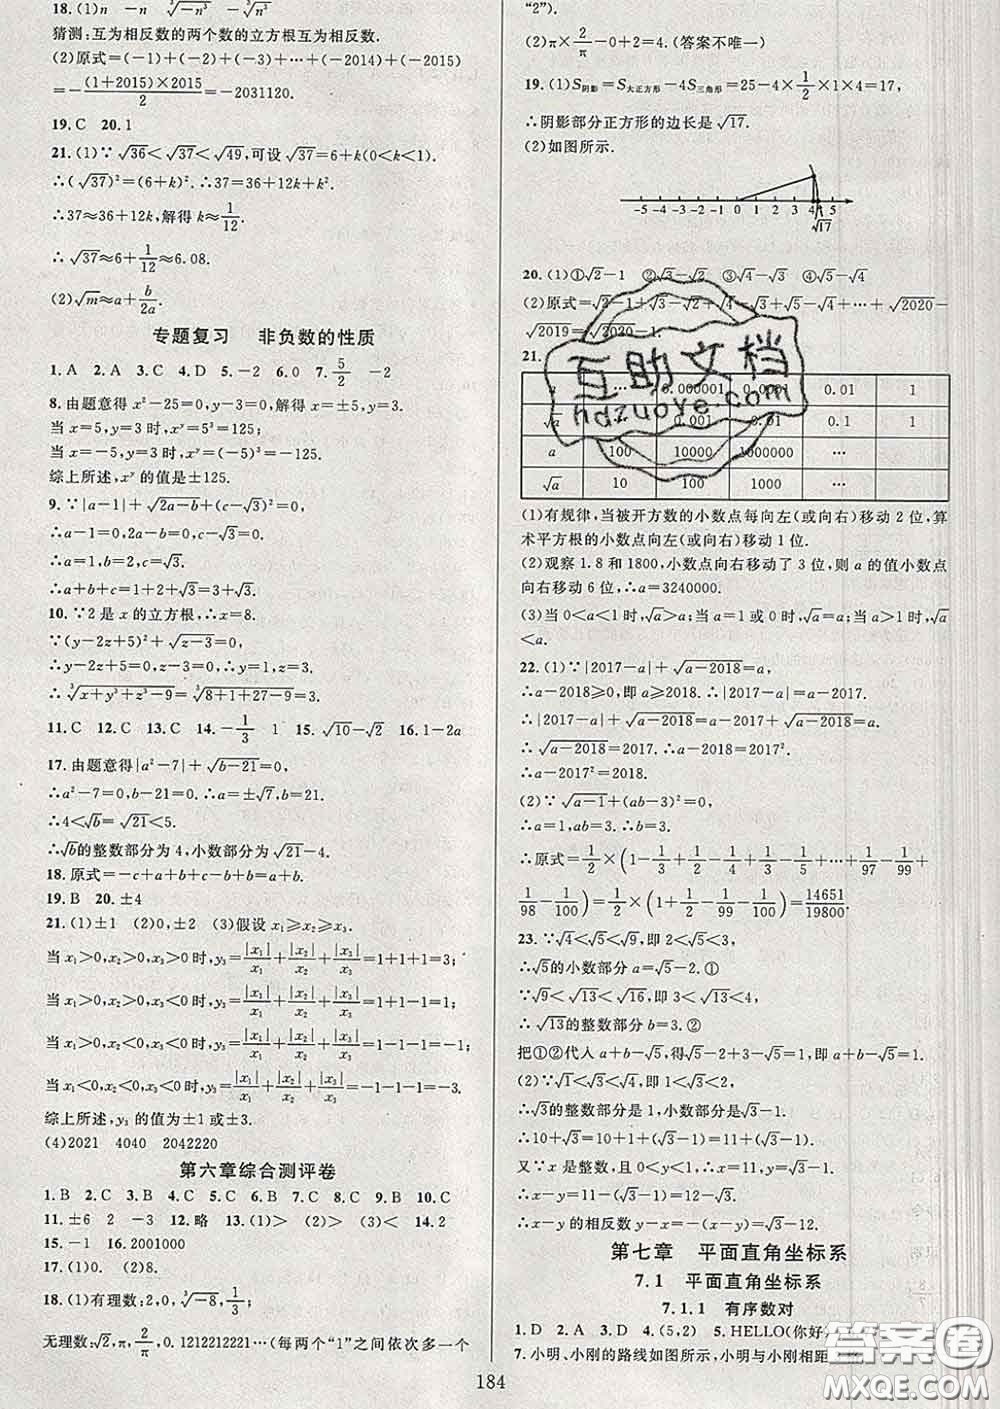 18.(1)n　-n　∛n³　∛-n³
猜测:互为相反数的两个数的立方根互为相反数.
(2)原式=(-1)+(-2)+(-3)+…+(-2014)+(-2015)
=-(1+2015)×2015/2=-2031120.
19.C　20.1
21.(1)∵√36<√37<√49,可设√37=6+k(0<k<1).
∴(√37)²=(6+k)².∴37=36+12k+k².
∴37≈36+12k,解得k≈1/12.
∴√37≈6+1/12≈6.08.
(2)√m≈a+b/2a.
专题复习　非负数的性质
1.A　2.A　3.C　4.D　5.-2　6.0　7.5/2　-2
8.由题意得x²-25=0,y-3=0,解得x=±5,y=3.
当x=5,y=3时,xʸ=5³=125;
当x=-5,y=3时,xʸ=(-5)³=-125.
综上所述,xʸ的值是±125.
9.∵|a-1|+√2a-b+(c-√3)²=0,
∴a-1=0,2a-b=0,c-√3=0.
∴a=1,b=2,c=√3.
∴a+b+c=1+2+√3=3+√3.
10.∵2是x的立方根,∴x=8.
∵(y-2z+5)²+√z-3=0,
∴y-2z+5=0,z-3=0.∴y=1,z=3.
∴∛x+y³+z³-9=∛8+1+27-9=3.
11.C　12.C　13.C　14.-1/3　1　15.√10-√2　16.1-2a
17.由题意得|a²-7|+√b-21=0,
∴a²-7=0,b-21=0.∴a=±√7,b=21.
∴4<√b=√21<5.
∴√b的整数部分为4,小数部分为√21-4.
18.原式=-c+a+b+c=a+b.
19.B　20.±4
21.(1)±1　(2)0,±2　(3)假设x₁≥x₂≥x₃.
当x₁>0,x₂>0,x₃>0时,y₃=|x₁|/x₁+|x₂|/x₂+|x₃|/x₃=1+1+1=3;
当x₁>0,x₂>0,x₃<0时,y₃=|x₁|/x₁+|x₂|/x₂+|x₃|/x₃=1+1-1=1;
当x₁>0,x₂<0,x₃<0时,y₃=|x₁|/x₁+|x₂|/x₂+|x₃|/x₃=1-1-1=-1;
当x₁<0,x₂<0,x₃<0时,y₃=|x₁|/x₁+|x₂|/x₂+|x₃|/x₃=-1-1-1=-3.
综上所述,y₃的值为±1或±3.
(4)2021　4040　2042220
第六章综合测评卷
1.B　2.C　3.B　4.D　5.C　6.C　7.D　8.C　9.B　10.C
11.±6　2　-3　12.略　13.(1)>　(2)>　(3)<　14.2
15.-1　16.2001000
17.(1)0.　(2)8.
18.(1)有理数:2,0,∛-8,1/3;
无理数:√2,π,2/π,0.1212212221…(每两个“1”之间依次多一个
“2”).
(2)π×2/π-0+2=4.(答案不唯一)
19.(1)S阴影=S大正方形-4S三角形=25-4×1/2×1×4=17,
∴阴影部分正方形的边长是√17.
(2)如图所示.
-5 -4 -3 -2 -1 0 1 2 3 4 5
√17
20.(1)①√2-1　②√3-√2　③√4-√3　④√5-√4
(2)原式=√2-1+√3-√2+√4-√3+√5-√4+…+√2020-
√2019=√2020-1.
21.
a　…　0.000001　0.0001　0.01　1
√a　…　0.001　0.01　0.1　1
a　100　10000　1000000　…
√a　10　100　1000　…
(1)有规律,当被开方数的小数点每向左(或向右)移动2位,算
术平方根的小数点向左(或向右)移动1位.
(2)观察1.8和1800,小数点向右移动了3位,则a的值小数点
向右移动6位,∴a=3240000.
(3)当0<a<1时,√a>a;当a=1或0时,√a=a;当a>1时,√a
<a.
22.(1)∵|2017-a|+√a-2018=a,
∴a-2018≥0,即a≥2018.∴|2017-a|=a-2017.
∴|2017-a|+√a-2018=a-2017+√a-2018=a.
∴√a-2018=2017.∴a-2018=2017².
∴a-2017²=2018.
(2)∵√a-1+(ab-3)²=0,
∴a=1,ab=3.∴b=3.
∴原式=1/2×(1-1/3+1/2-1/4+1/3-1/5+…+1/97-1/99+
1/98-1/100)=1/2×(1+1/2-1/99-1/100)=14651/19800.
23.∵√4<√5<√9,即2<√5<3.
∴√5的小数部分a=√5-2.①
∵√9<√13<√16,即3<√13<4.
∴√13的整数部分b=3.②
把①②代人a+b-√5,得√5-2+3-√5=1,即a+b-√5=1.
(2)∵√1<√3<√4,∴1<√3<2.
∴√3的整数部分是1,小数部分是√3-1.
∴10+√3=10+1+(√3-1)=11+(√3-1).
又∵x是整数,且0<y<1,∴x=11,y=√3-1.
∴x-y=11-(√3-1)=12-√3.
∴x-y的相反数y-x=-(x-y)=√3-12.
第七章　平面直角坐标系
7.1　平面直角坐标系
7.1.1　有序数对
1.D　2.D　3.A　4.(5,2)　5.HELLO(你好)
7.小明、小刚的路线如图所示,小明与小刚相距
184
互助文档
hdzuoye.com
答案圈
MXQE.COM